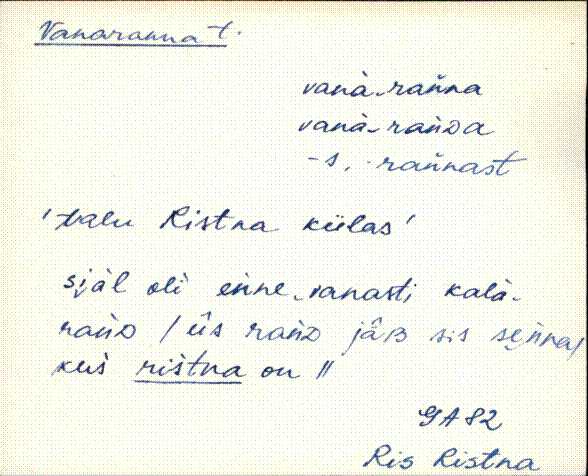 Vanaranna t.
vanà-rańna
vanà-rańᴅa
-s, -rańnast
'talu Ristna külas'
själ oli enne-vanasti kalà-
rańᴅ / ǖs rańᴅ jäᴃ sis sẹńna /
kus ristna on //
GA82
Ris Ristna